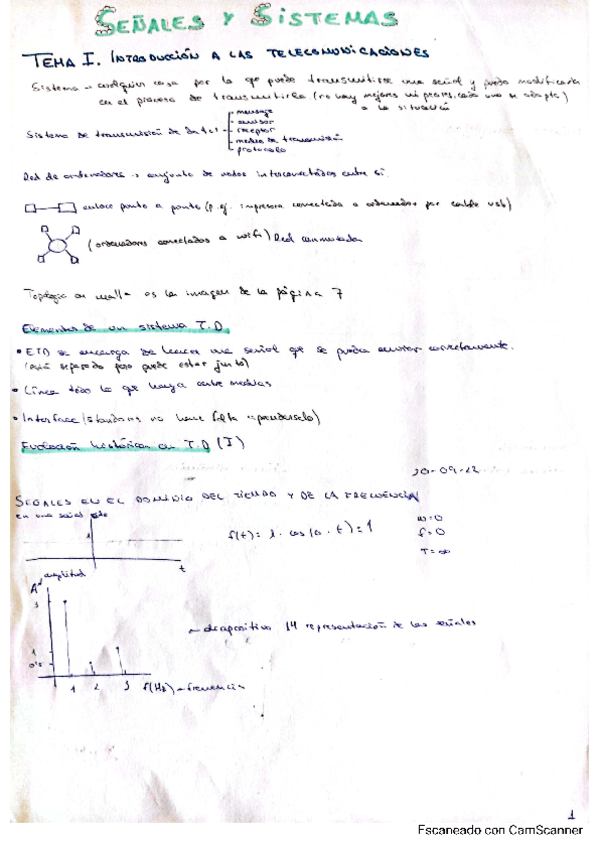 SEÑALES Y SISTEMAS
TEMA I. INTRODUCCIÓN A LAS TELECOMUNICACIONES
Sistema → cualquier cosa por la que puede transmitirse una señal y pueda modificarla
en el proceso de transmitirla (no hay mejores ni peores, cada uno se adapta)
a la situación
Sistema de transmisión de datos
- mensaje
- emisor
- receptor
- medio de transmisión
- protocolo
Red de ordenadores → conjunto de nodos interconectados entre sí.
enlace punto a punto (p.ej. impresora conectada a ordenador por cable usb)
(ordenadores conectados a wifi) Red conmutada
Topología en malla es la imagen de la página 7
Elementos de un sistema T.D.
• ETD se encarga de hacer una señal que se pueda enviar correctamente.
(está separado pero puede estar junto)
• Línea todo lo que haya entre modems
• Interface (standares no hace falta aprenderselo)
Evolución histórica en T.D (I)
20-09-22
SEÑALES EN EL DOMINIO DEL TIEMPO Y DE LA FRECUENCIA
en una señal cte
1
t
f(t)= 1 · cos(0 · t) = 1
w=0
f=0
T=∞
amplitud
A
3
1
0'5
1 2 3 f(Hz) → frecuencia
→ diapositiva 14 representación de las señales
1
Escaneado con CamScanner